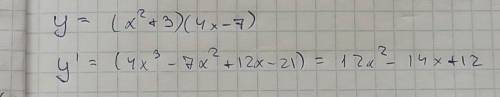 y = (x²+3)(4x-7)
y' = (4x³ - 7x² + 12x - 21) = 12x² - 14x + 12